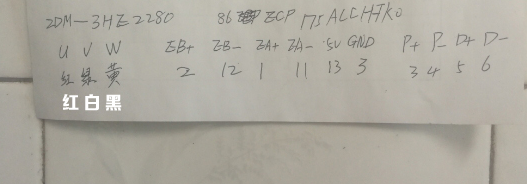 2DM-3HE2280 86 ECP 175ALCHTK0
U V W EB+ EB- EA+ EA- 5V GND P+ P- D+ D-
红 绿 黄 2 12 1 11 13 3 3 4 5 6
红 白 黑